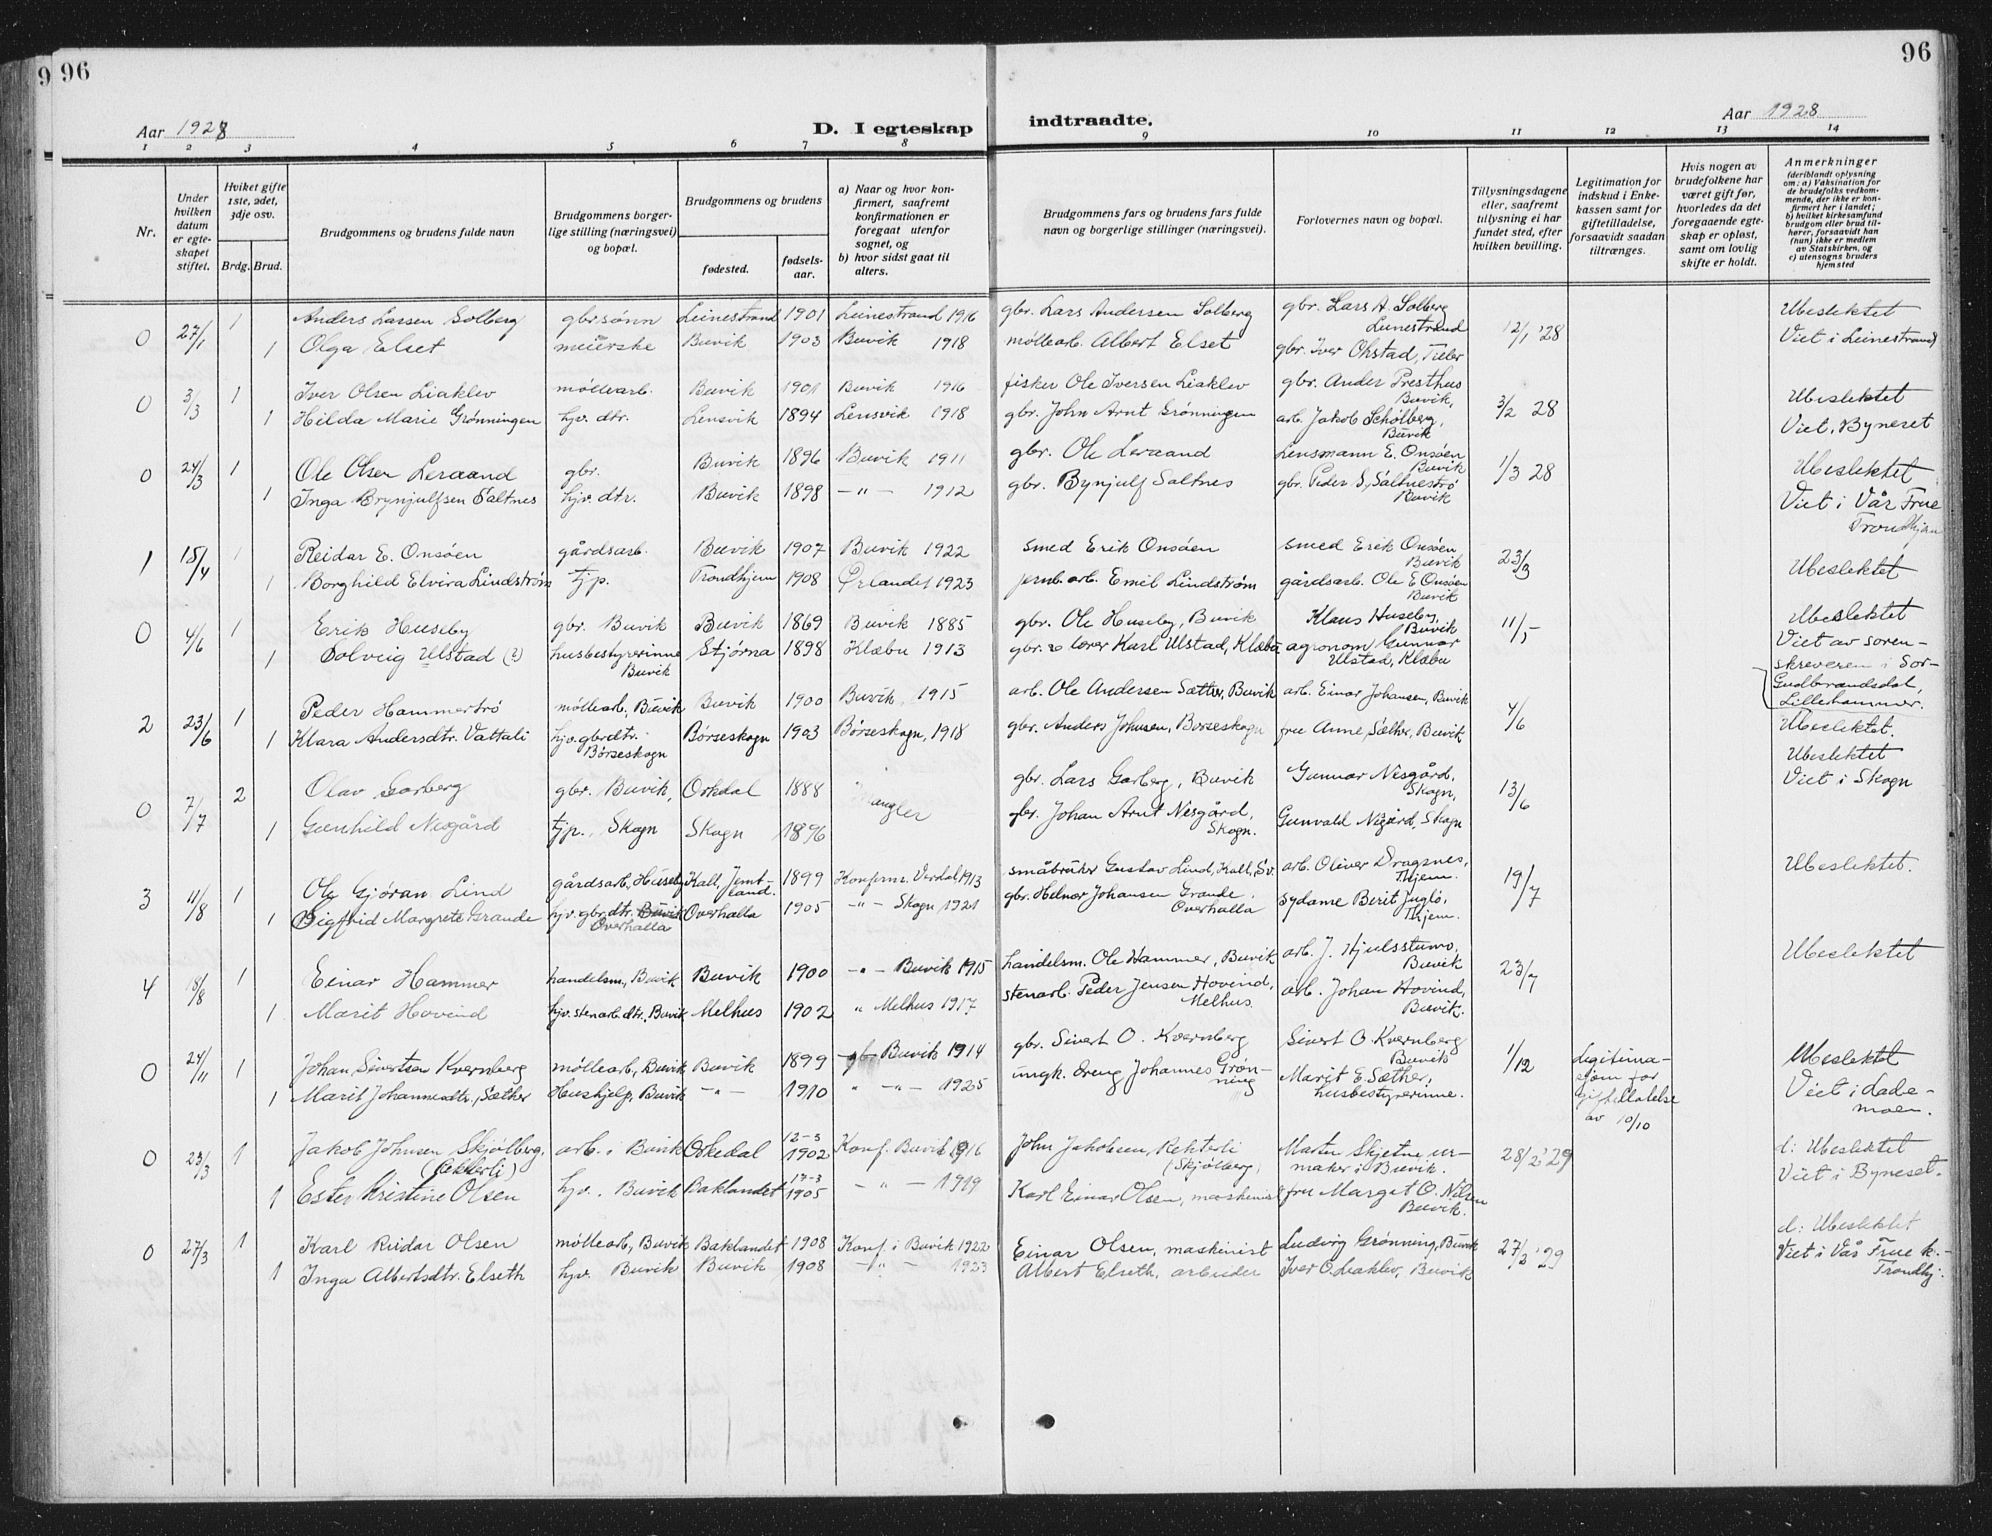 96
96
Aar 1928
D. I egteskap indtraadte.
Aar 1928
1 2 3 4 5 6 7 8 9 10 11 12 13 14
Nr.
Under hvilken datum er egteskapet stiftet.
Hviket gifte 1ste, 2det, 3dje osv.
Brdg. Brud.
Brudgommens og brudens fulde navn
Brudgommens borgerlige stilling (næringsvei) og bopæl.
Brudgommens og brudens
fødested.
fødselsaar.
a) Naar og hvor konfirmert, saafremt konfirmationen er foregaat utenfor sognet, og
b) hvor sidst gaat til alters.
Brudgommens fars og brudens fars fulde navn og borgerlige stillinger (næringsvei).
Forlovernes navn og bopæl.
Tillysningsdagene eller, saafremt tillysning ei har fundet sted, efter hvilken bevilling.
Legitimation for indskud i Enkekassen samt for giftetilladelse, forsaavidt saadan tiltrænges.
Hvis nogen av brudefolkene har været gift før, hvorledes da det foregaaende egteskap er opløst, samt om lovlig skifte er holdt.
Anmerkninger (deriblandt oplysning om: a) Vaksination for de brudefolks vedkommende, der ikke er konfirmert her i landet; b) hvilket kirkesamfund brudgom eller brud tilhører, forsaavidt han (hun) ikke er medlem av Statskirken, og c) utensogns bruders hjemsted
0 27/1 1 Anders Larsen Solberg gbr.sønn Leinestrand 1901 Leinestrand 1916 gbr. Lars Andersen Solberg gbr. Lars A. Solberg Leinestrand 12/1 '28 Ubeslektet
1 Olga Elset meierske Buvik 1903 Buvik 1918 møllearb. Albert Elset gbr. Iver Okstad, Tiller Viet i Leinestrand
0 3/3 1 Iver Olsen Liaklev møllearb. Buvik 1901 Buvik 1916 fisker Ole Iversen Liaklev gbr. Ander Presthus Buvik, 3/2 28 Ubeslektet
1 Hilda Marie Grønningen hjv. dtr. Lensvik 1894 Lensvik 1918 gbr. John Arnt Grønningen arb. Jakob Schølberg, Buvik Viet. Byneset
0 24/3 1 Ole Olsen Leraand gbr. Buvik 1896 Buvik 1911 gbr. Ole Leraand Lensmann E. Onsøen Buvik 1/3 28 Ubeslektet
1 Inga Brynjulfsen Saltnes hjv. dtr. Buvik 1898 -"- 1912 gbr. Bynjulf Saltnes gbr. Peder S. Saltnestrø Buvik Viet i Vår Frue Trondhjem
1 15/4 1 Reidar E. Onsøen gårdsarb. Buvik 1907 Buvik 1922 smed Erik Onsøen smed Erik Onsøen Buvik 23/3 Ubeslektet
1 Borghild Elvira Lindstrøm tjp. Trondhjem 1908 Ørlandet 1923 jernb.arb. Emil Lindstrøm gårdsarb. Ole E Onsøen Buvik
0 4/6 1 Erik Huseby gbr. Buvik Buvik 1869 Buvik 1885 gbr. Ole Huseby, Buvik Klaus Huseby, Buvik 11/5 Ubeslektet
1 Solveig Ulstad (?) husbestyrerinne Buvik Stjørna 1898 Klæbu 1913 gbr. & lærer Karl Ulstad, Klæbu agronom Gunnar Ulstad, Klæbu Viet av sorenskreveren i Sør-Gudbrandsdal, Lillehammer.
2 23/6 1 Peder Hammertrø møllearb., Buvik Buvik 1900 Buvik, 1915 arb. Ole Andersen Sæther, Buvik arb. Einar Johansen, Buvik 4/6 Ubeslektet.
1 Klara Andersdtr. Vattali hjv. gbrdtr. Børseskogn Børseskogn 1903 Børseskogn, 1918 gbr. Anders Johnsen, Børseskogn frue Anne Sæther, Buvik
0 7/7 2 Olav Garberg gbr. Buvik, Orkdal 1888 mangler gbr. Lars Garberg, Buvik Gunnar Nesgård, Skogn, 13/6 Ubeslektet Viet i Skogn
1 Gunhild Nesgård tjp., Skogn Skogn 1896 gbr. Johan Arnt Nesgård, Skogn. Gunvald Nigård, Skogn
3 11/8 1 Ole Gjøran Lind gårdsarb., Huseby Kall, Jemtland. 1899 Konfirm. Verdal 1913 småbruker Gustav Lind, Kall, Sv. arb. Oliver Dragsnes, Thjem. 19/7 Ubeslektet.
1 Sigfrid Margrete Grande hjv. gbr.dtr. Buvik Overhalla Overhalla 1905 -"- Skogn 1921 gbr. Helmer Johansen Grande, Overhalla sydame Berit Juglø, Thjem.
4 18/8 1 Einar Hammer handelsm., Buvik Buvik 1900 -"- Buvik 1915 handelsm. Ole Hammer, Buvik arb. J. Hjulsstumo, Buvik 23/7 Ubeslektet
1 Marit Hovind hjv. stenarb. dtr. Buvik Melhus 1902 " Melhus 1917 stenarb. Peder Jensen Hovind, Melhus. arb. Johan Hovind, Buvik.
0 24/11 1 Johan Sivertsen Kvernberg møllearb., Buvik Buvik 1899 Buvik 1914 gbr. Sivert O. Kvernberg Sivert O. Kvernberg Buvik 1/12 Legitimasjon for giftetillatelse av 10/10 Ubeslektet
1 Marit Johannesdtr. Sæther Hushjelp, Buvik -"- 1910 " -"- 1925 ungk. dreng Johannes Grønning Marit E. Sæther, husbestyrerinne. Viet i Lademoen.
0 23/3 1 Jakob Johnsen Skjølberg, (Rekterli) arb. i Buvik Orkedal 12-3 1902 Konf. Buvik 1916 John Jakobsen, Rekterli (Skjølberg) Martin Skjetne, urmaker i Buvik. 28/2 '29 d: Ubeslektet
1 Ester Kristine Olsen hjv., Buvik Baklandet 17-3 1905 -"- 1919 Karl Einar Olsen, maskinist fru Margit O. Nilsen Buvik. Viet i Byneset.
0 27/3 1 Karl Reidar Olsen møllearb., Buvik Baklandet 1908 Konf. i Buvik 1922 Einar Olsen, maskinist Ludvig Grønning, Buvik 27/2 '29 d: Ubeslektet
1 Inga Albertsdtr. Elseth hjv. Buvik Buvik 1908 -"- 1923 Albert Elseth, arbeider Iver O. Liaklev, Buvik Viet i Vår Frue k. Trondhj.